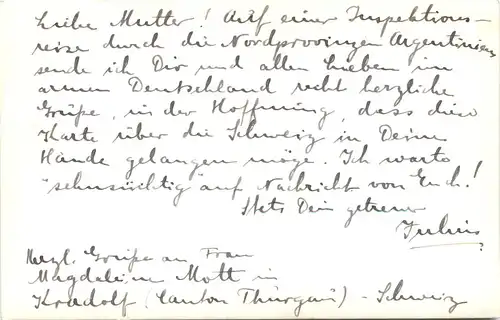 Liebe Mutter! Auf einer Inspektions-
reise durch die Nordprovinzen Argentiniens
sende ich Dir und allen Lieben im
armen Deutschland recht herzliche
Grüße, in der Hoffnung, dass diese
Karte über die Schweiz in Deine
Hände gelangen möge. Ich warte
"sehnsüchtig" auf Nachricht von Euch!
Stets Dein getreuer
Julius
Herzl. Grüße an Frau
Magdalene Mott in
Kradolf (Canton Thurgau) - Schweiz